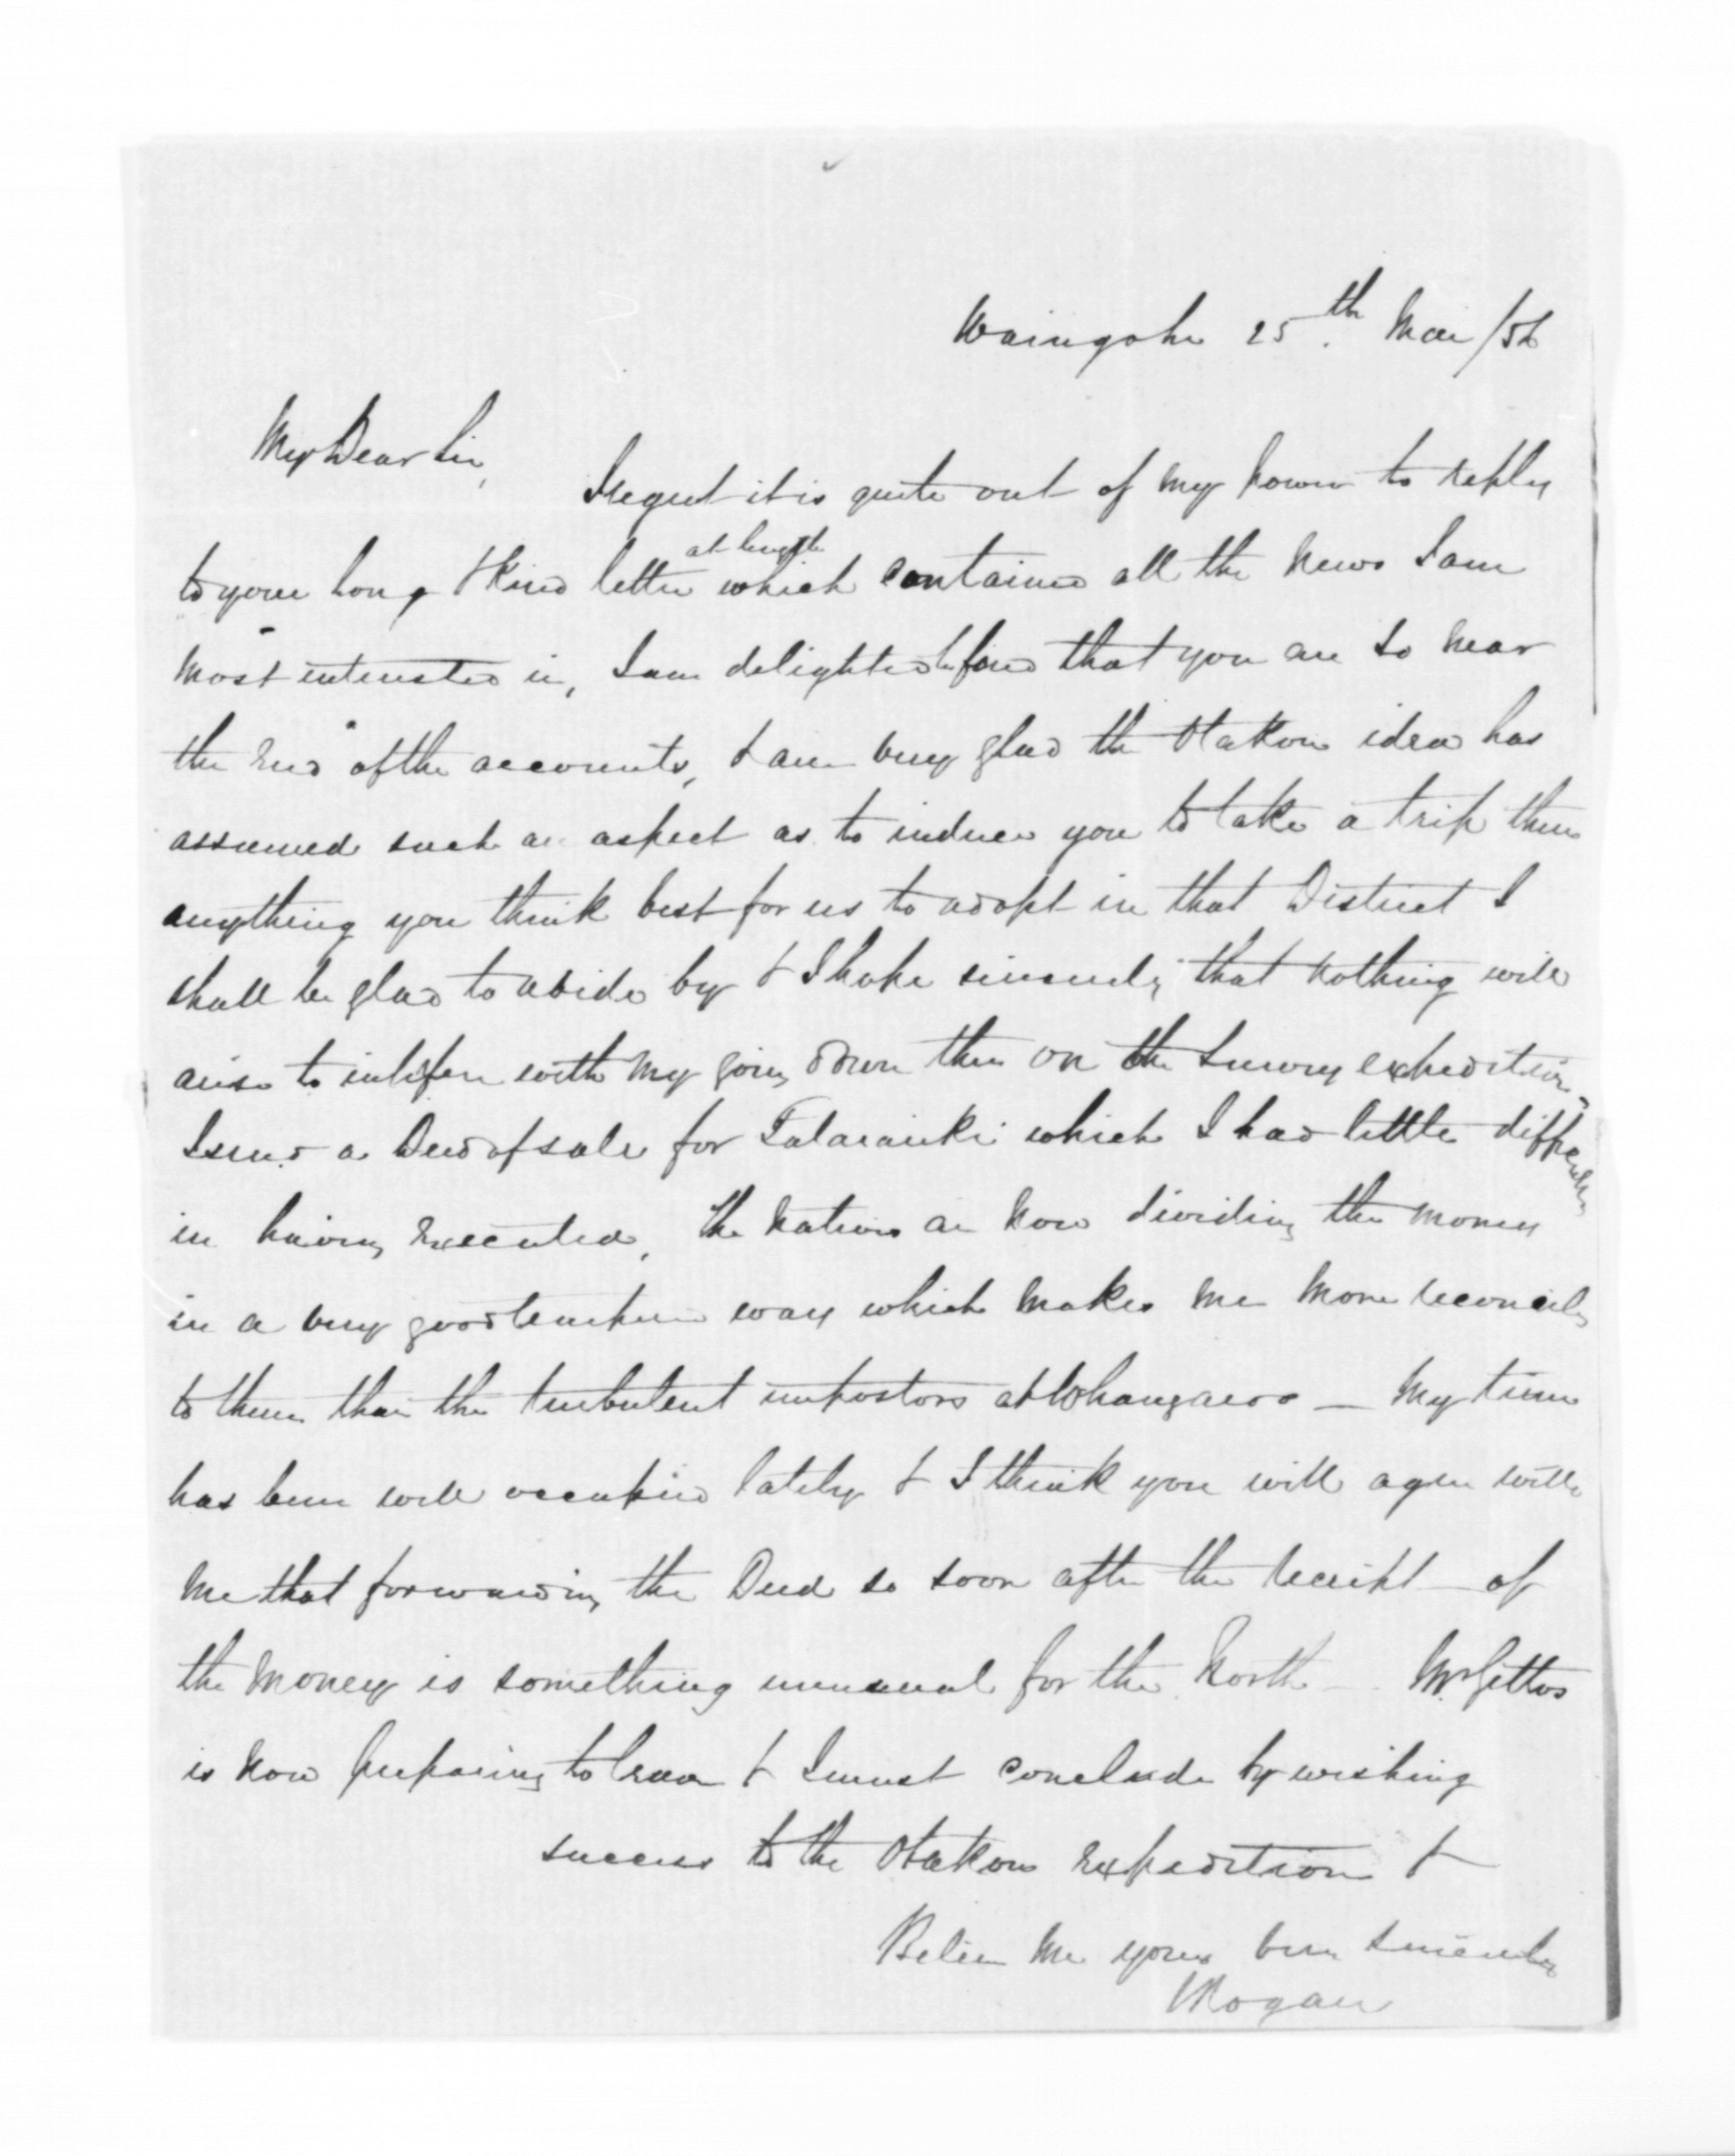 Waingohe 25th Mar /56
My Dear Sir,
I regret it is quite out of my power to reply
at length
to your long & kind letter which contained all the news I am
most interested in, I am delighted to find that you are so near
the end of the accounts, & am very glad the Otakou idea has
assumed such an aspect as to induce you to take a trip there
anything you think best for us to adopt in that District I
shall be glad to abide by & I hope sincerely that nothing will
arise to interfere with my going down there on the Survey expedition.
I send a Deed of sale for which I had little difficulty
in having executed, the natives are now dividing the money
in a very good tempered way which makes me more reconciled
to them than the turbulent impostors at Whangaroo — My time
has been well occupied lately & I think you will agree with
me that forwarding the Deed so soon after the receipt of
the money is something unusual for the North — Mr Gittos
is now preparing to leave & I must conclude by wishing
success to the Otakou expedition &
Believe me yours very sincerely
Rogan